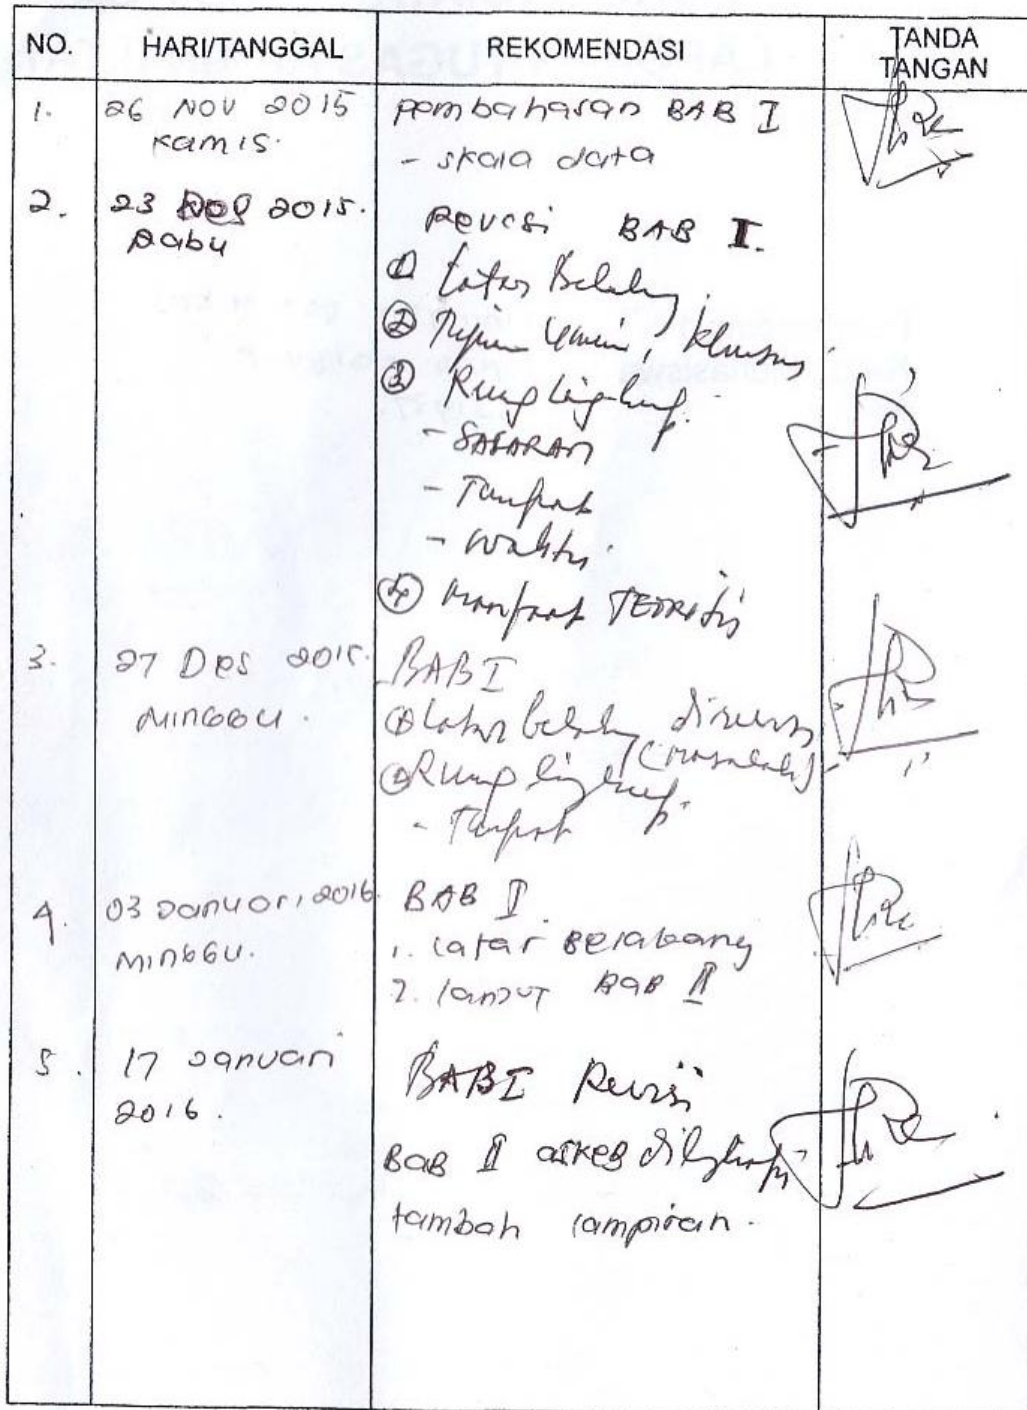 NO. HARI/TANGGAL REKOMENDASI TANDA TANGAN
1. 26 NOV 2015 pembahasan BAB I
Kamis. - skala data
2. 23 Des 2015. Revisi BAB I.
Rabu
① Latar Belakang.
② Tujuan Umum, khusus
③ Ruang lingkup.
- SASARAN
- Tempat
- waktu.
④ Manfaat TEORITIS
3. 27 Des 2015. BAB I
Minggu. ① Latar belakang direvisi
(masalah)
② Ruang lingkup.
- Tempat
4. 03 Januari, 2016. BAB I
Minggu. 1. Latar Belakang
2. lanjut BAB II
5. 17 Januari BAB I Revisi
2016.
BAB II askeb dilengkapi
tambah lampiran.